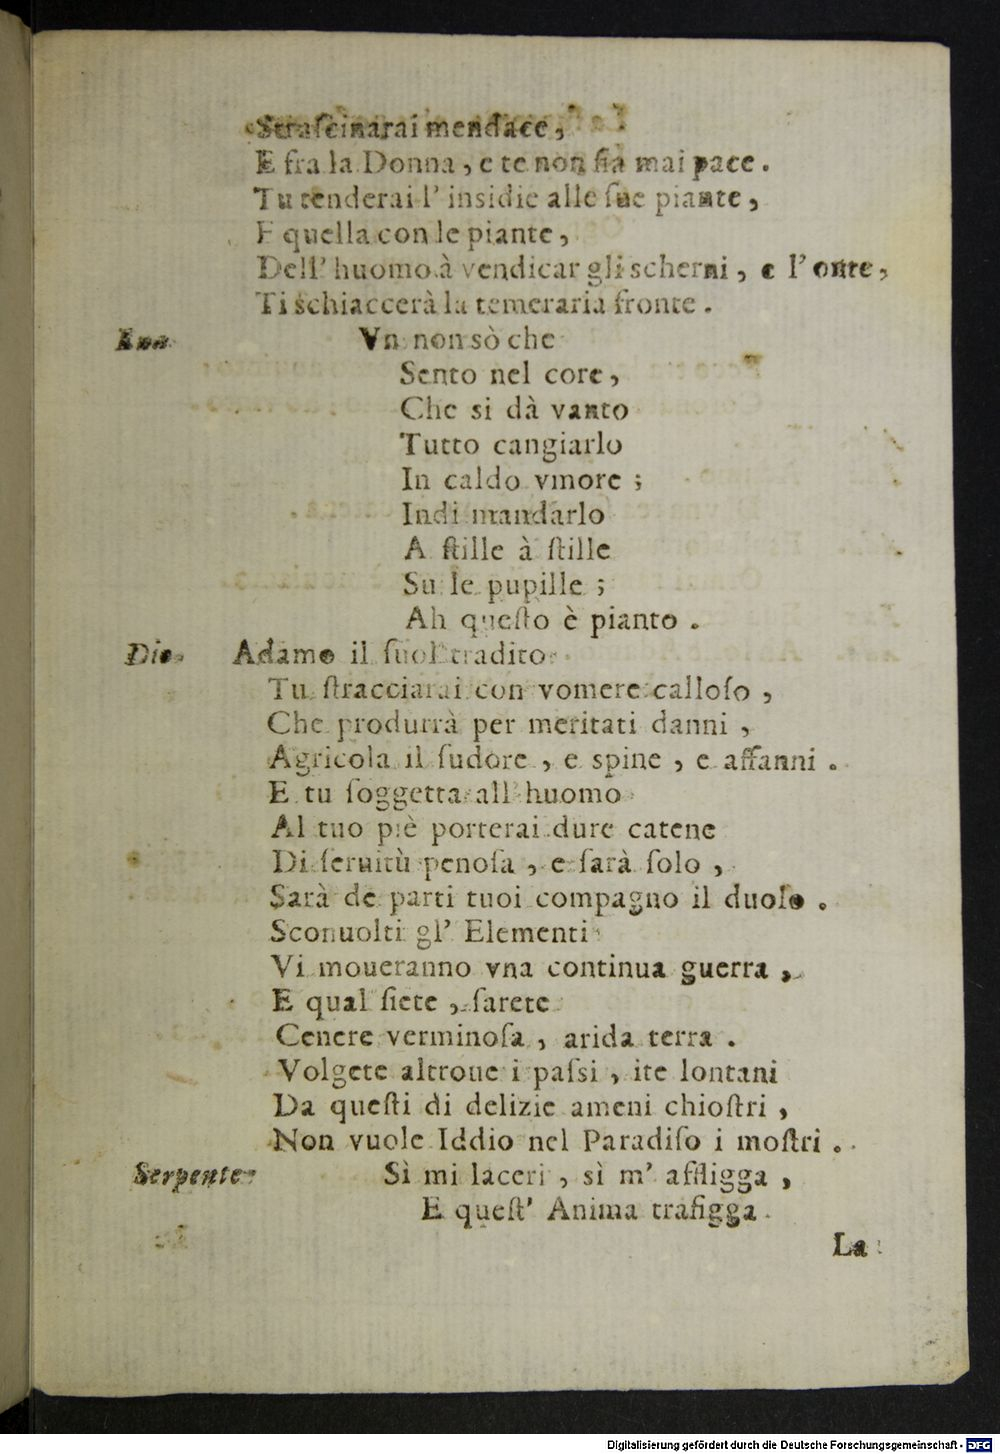 Straſcinarai mendace,
E fra la Donna, e te non fia mai pace.
Tu tenderai l' insidie alle ſue piante,
E quella con le piante,
Dell' huomo à vendicar gli scherni, e l' onte,
Ti schiaccerà la temeraria fronte.
Eua. Vn non sò che
Sento nel core,
Che si dà vanto
Tutto cangiarlo
In caldo vmore;
Indi mandarlo
A ſtille à ſtille
Su le pupille;
Ah queſto è pianto.
Dio. Adamo il ſuol tradito
Tu ſtracciarai con vomere calloſo,
Che produrrà per meritati danni,
Agricola il ſudore, e spine, e affanni.
E tu ſoggetta all' huomo
Al tuo piè porterai dure catene
Di ſeruitù penoſa, e ſarà ſolo,
Sarà de parti tuoi compagno il duolo.
Sconuolti gl' Elementi
Vi moueranno vna continua guerra,
E qual ſiete, ſarete
Cenere verminoſa, arida terra.
Volgete altroue i paſsi, ite lontani
Da queſti di delizie ameni chioſtri,
Non vuole Iddio nel Paradiſo i moſtri.
Serpente. Sì mi laceri, sì m' affligga,
E queſt' Anima trafigga
La
Digitalisierung gefördert durch die Deutsche Forschungsgemeinschaft - DFG